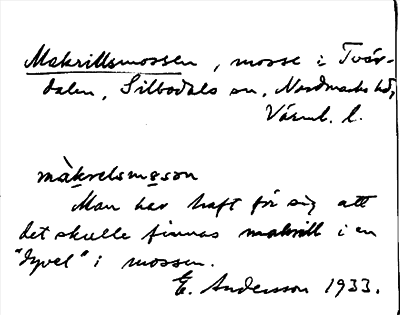 Makrillsmossen, mosse i Tvär-
dalen, Silbodals sn, Nordmarks hd,
Värml. l.
màkrelsmoson
Man har haft för sig att
det skulle finnas makrill i en
"dyvel" i mossen.
E. Andersson 1933.